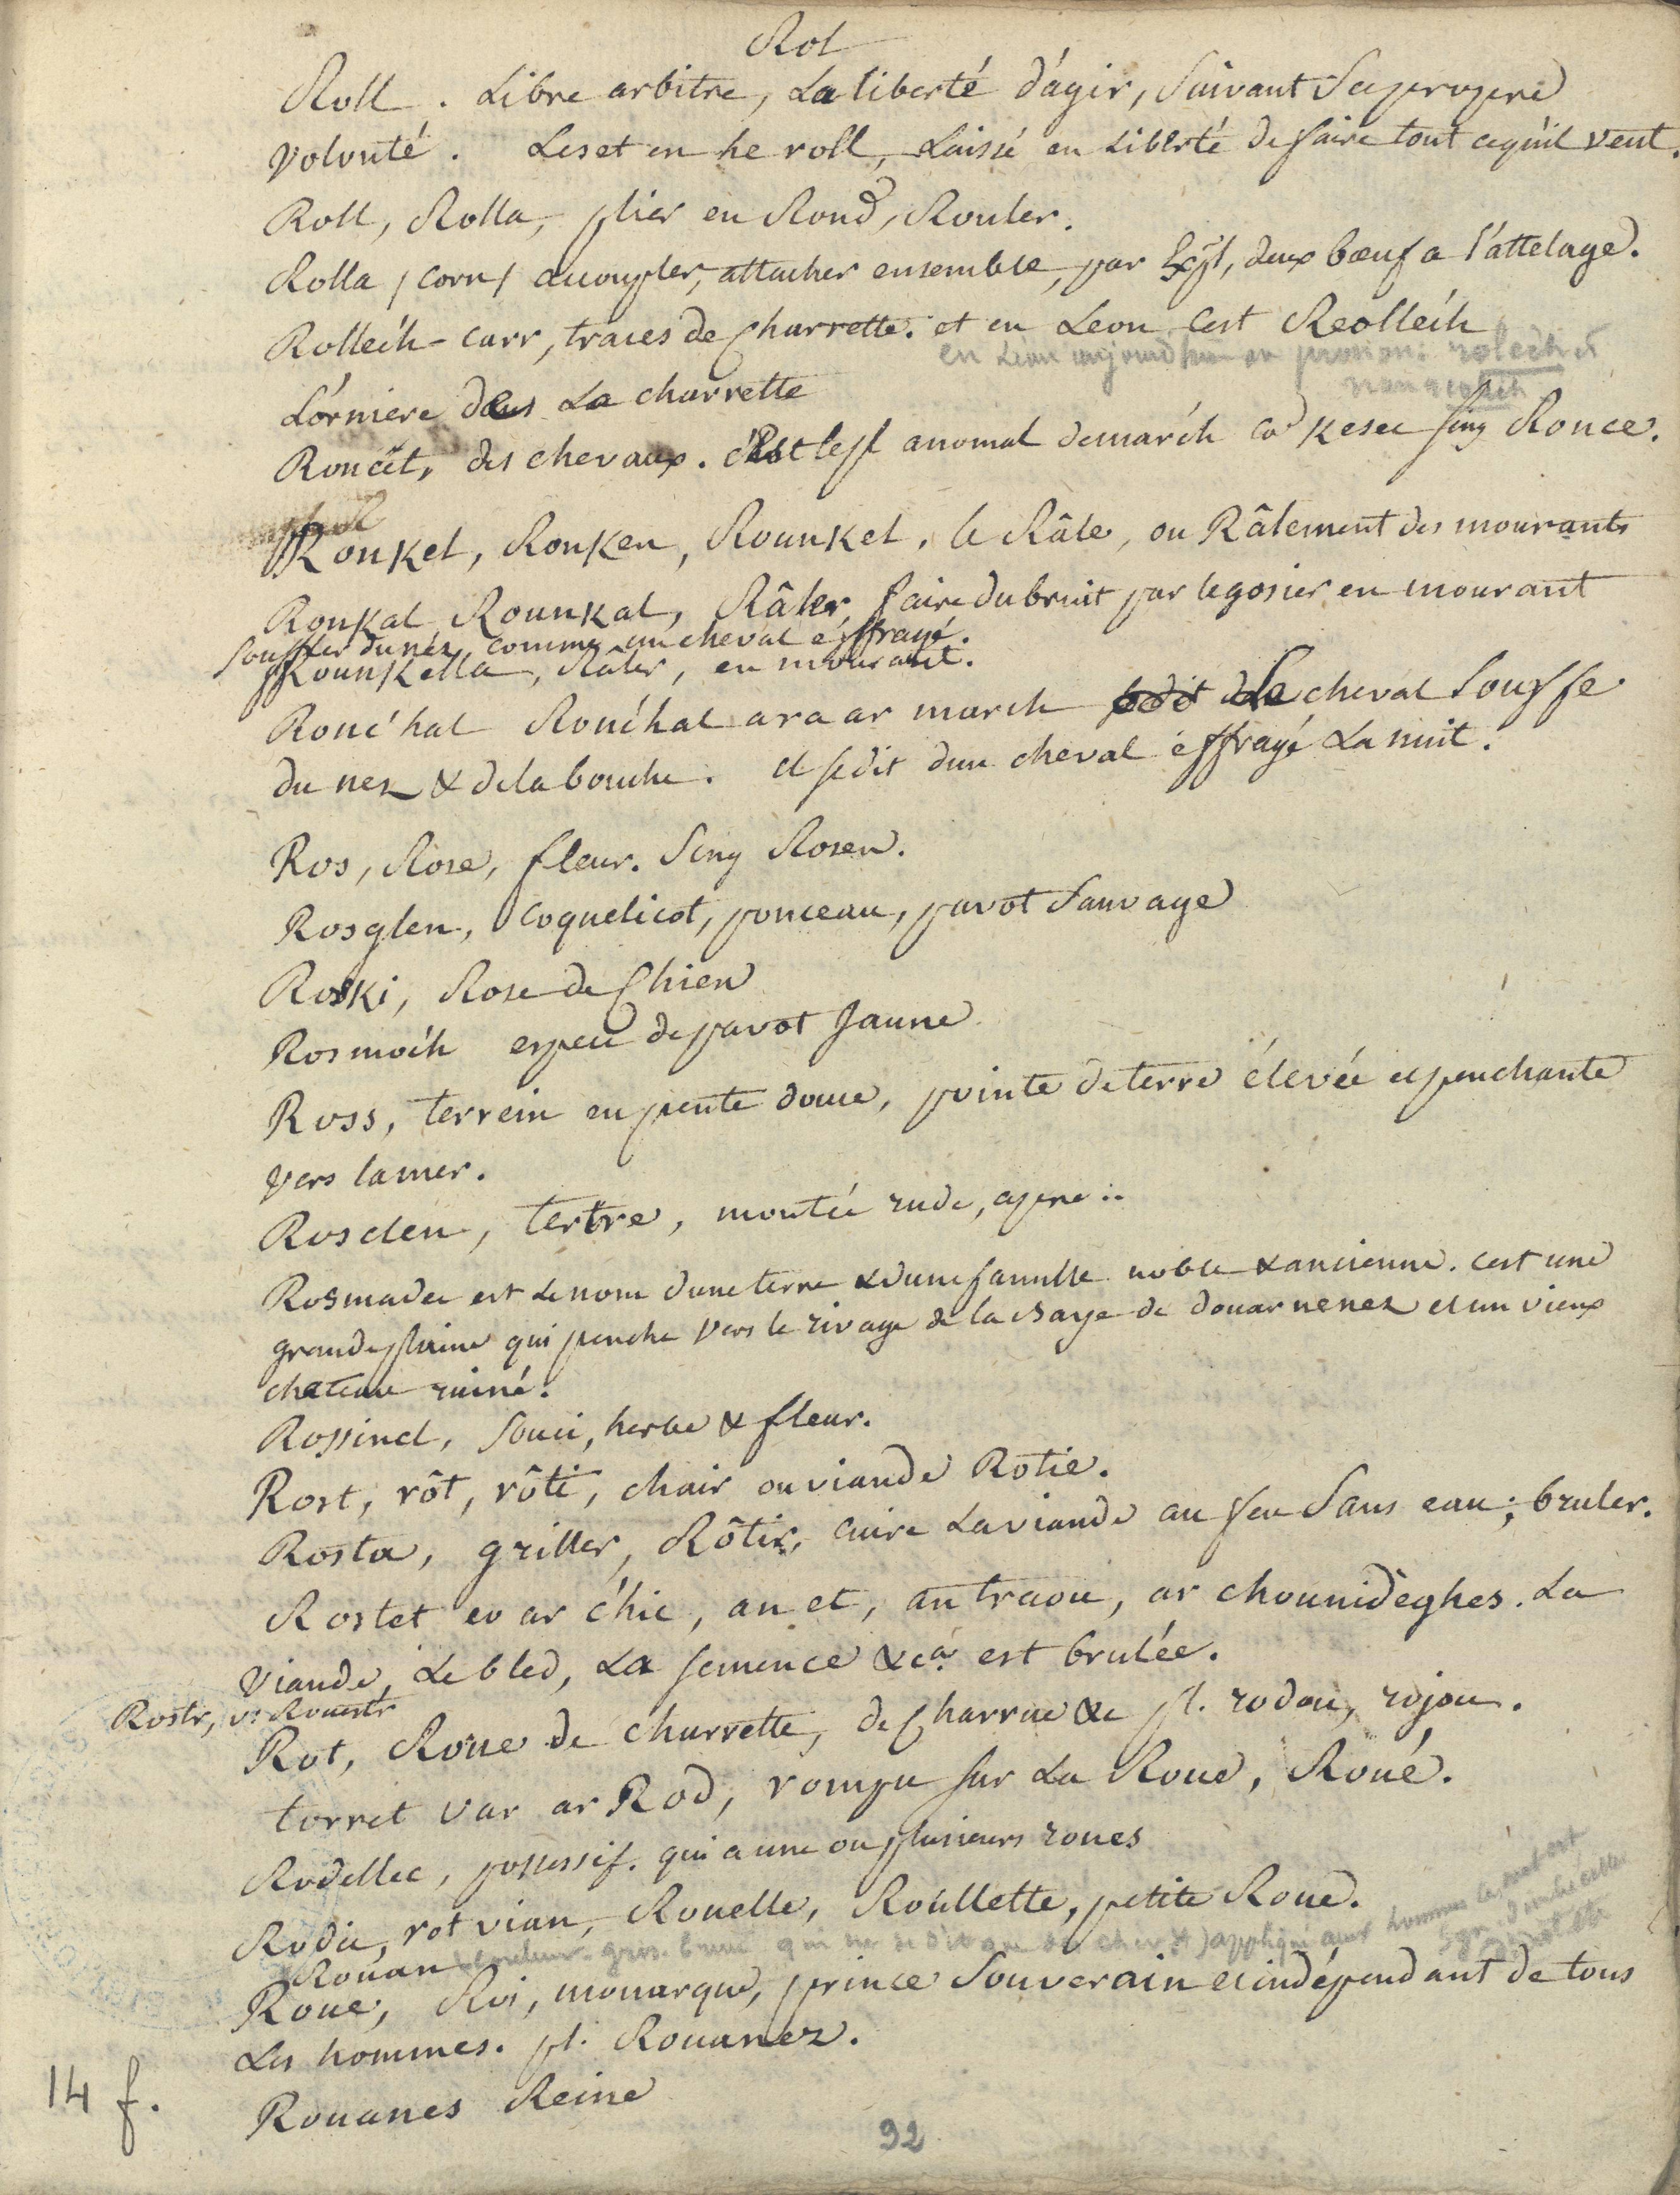 Rol
Roll. Libre arbitre, La liberté d'agir, Suivant Sa propre
volonté. Leset en he roll, Laissé en Liberté de faire tout ce qu'il veut.
Roll, Rolla, plier en Rond, Rouler.
Rolla / corn / accoupler, attacher ensemble, par deux bœuf a l'attelage.
Rollec'h-carr, traces de Charrette. et en Leon c'est Reollec'h
en Léon aujourd'hui on prononc: rolech et
non reolech
L'ornière de La charrette
Roncet, des chevaux. C'est le pl anomal de marc'h co Kesec sing Ronce.
Ronkel, Ronken, Rounkel, le Râle, ou Râlement des mourants
Ronkal Rounkal, Râler, faire du bruit par le gosier en mourant
Souffler du néz, comme un cheval effrayé.
Rounkella, Râler, en mourant.
Ronc'hal Ronc'hal a ra ar march Le cheval Souffle
du nez & de la bouche. Il se dit d'un cheval effrayé La nuit.
Ros, Rose, fleur. Sing Rosen.
Rosglen, Coquelicot, ponceau, pavot Sauvage
Roski, Rose de Chien
Rosmoc'h espece de pavot Jaune
Ross, terrein en pente douce, pointe de terre élevée et penchante
vers la mer.
Rosclen, tertre, montée rude, apre..
Rosmadec est Le nom d'une terre & d'une famille noble & ancienne. C'est une
grande plaine qui penche vers le rivage de la Baye de Douarnenez et un vieux
chateau ruiné.
Rossinel, Souci, herbe & fleur.
Rost, rôt, rôti, chair ou viande Rotie.
Rosta, griller, Rôtir, cuire La viande au feu Sans eau; bruler.
Rostet eo ar c'hic, an et, an traou, ar chounideghes. La
viande, Le bled, La semence &ca. est brulée.
Rostr, v: Rouestr
Rot, Roue de charrette, de Charrue &c pl. rodou, rojou.
torret var ar Rod, rompu sur La Roue, Roué.
Rodellec, possessif. qui a une ou plusieurs roues
Rodic, rot vian, Rouelle, Roullette, petite Roue.
Rouan couleur gris-brune qui ne se dit que des chev
Roue, Roi, monarque, prince Souverain et indépendant de tous
Les hommes. pl. Rouanez.
Rouanes Reine
14 f.
92